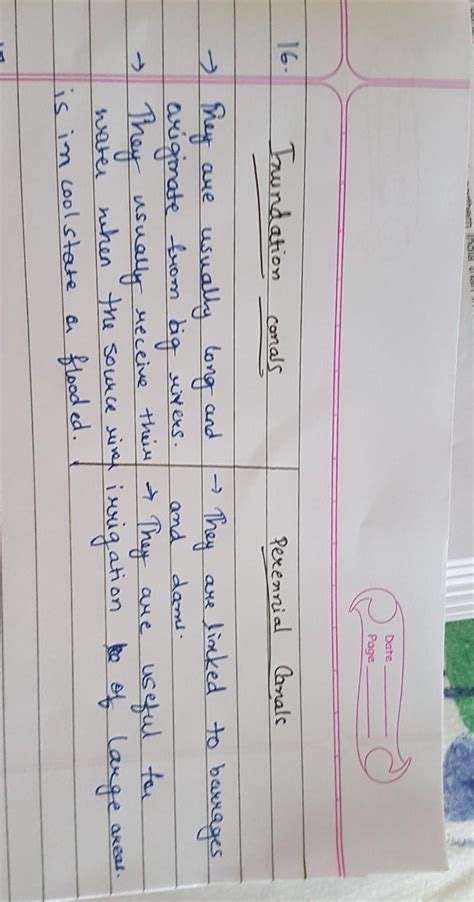 Date
Page
16. Inundation canals Perennial Canals
→ They are usually long and → They are linked to barrages
originate from big rivers. and dams.
→ They usually receive their → They are useful for
water when the source river irrigation of large areas.
is in cool state or flooded.